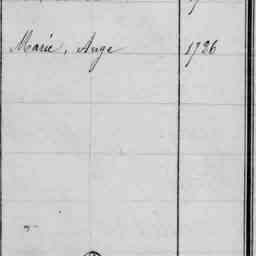 Marie, Ange 1726